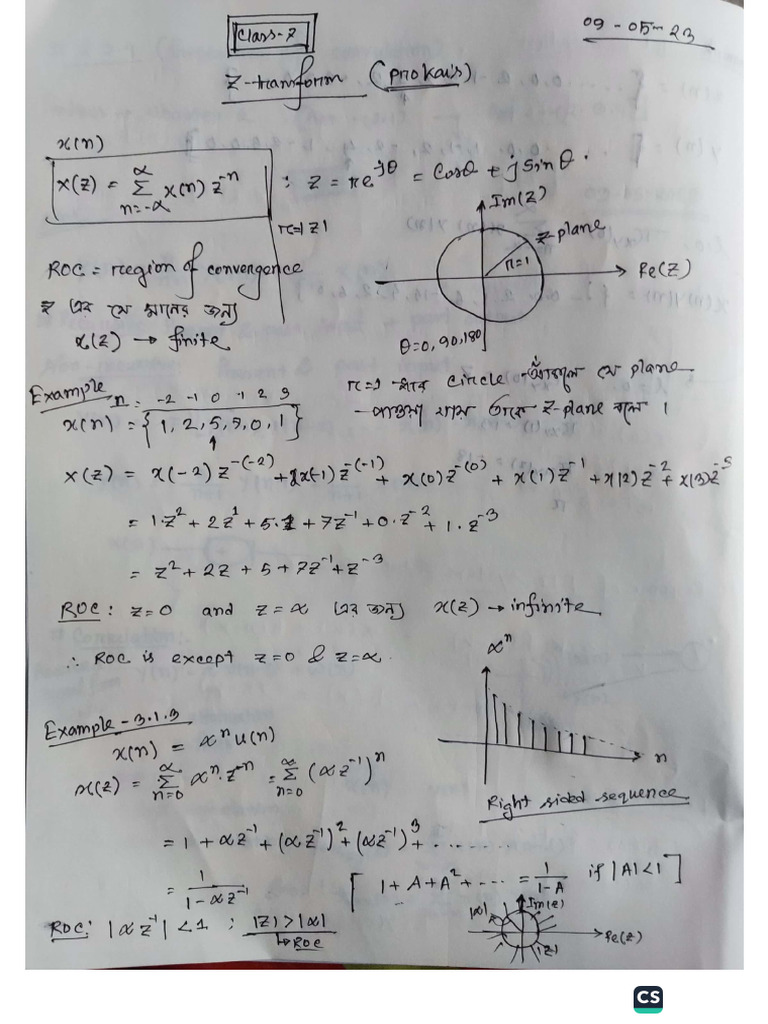 Class-7
09-05-23
Z-transform (Prokais)
x(n)
X(z) = ∑_{n=-∝}^{∝} x(n) z^{-n} ; z = re^{jθ} = Cosθ + j Sinθ.
r=|z|
Im(z)
z-plane
r=1
Re(z)
θ=0,90,180
ROC = region of convergence
z এর যে মানের জন্য
x(z) → finite
r=1
circle
যে plane
পাওয়া যায় তাকে z-plane বলে ।
Example
n: -2 -1 0 1 2 3
x(n) = {1, 2, 5, 7, 0, 1}
↑
X(z) = x(-2) z^{-(-2)} + x(-1) z^{-(-1)} + x(0) z^{-(0)} + x(1) z^{-1} + x(2) z^{-2} + x(3) z^{-3}
= 1·z^2 + 2z^1 + 5·1 + 7z^{-1} + 0·z^{-2} + 1·z^{-3}
= z^2 + 2z + 5 + 7z^{-1} + z^{-3}
ROC: z=0 and z=∝ এর জন্য x(z) → infinite
∴ ROC is except z=0 & z=∝.
Example-3.1.3
x(n) = ∝^n u(n)
x(z) = ∑_{n=0}^{∝} ∝^n·z^{-n} = ∑_{n=0}^{∝} (∝z^{-1})^n
∝^n
n
Right sided sequence
= 1 + ∝z^{-1} + (∝z^{-1})^2 + (∝z^{-1})^3 + .......
= 1/(1-∝z^{-1}) [1+A+A^2+ ... = 1/(1-A) if |A|<1]
ROC: |∝z^{-1}| < 1 ; |z| > |∝|
↳ROC
Im(z)
|∝|
Re(z)
|z|
CS